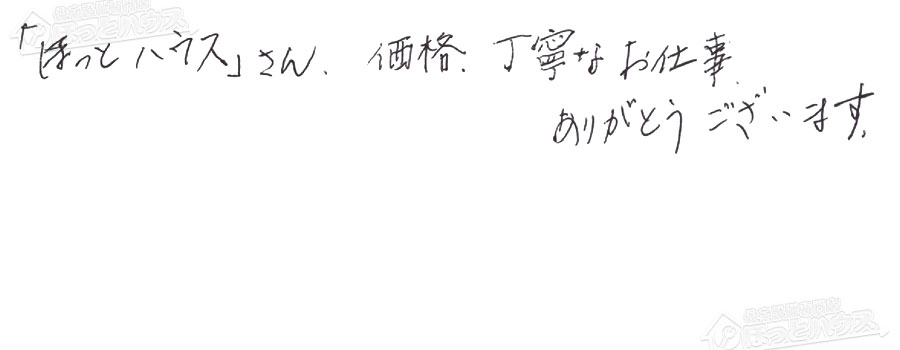 「ほっとハウス」さん、価格、丁寧なお仕事、
ありがとうございます。
ほっとハウス
ほっとハウス